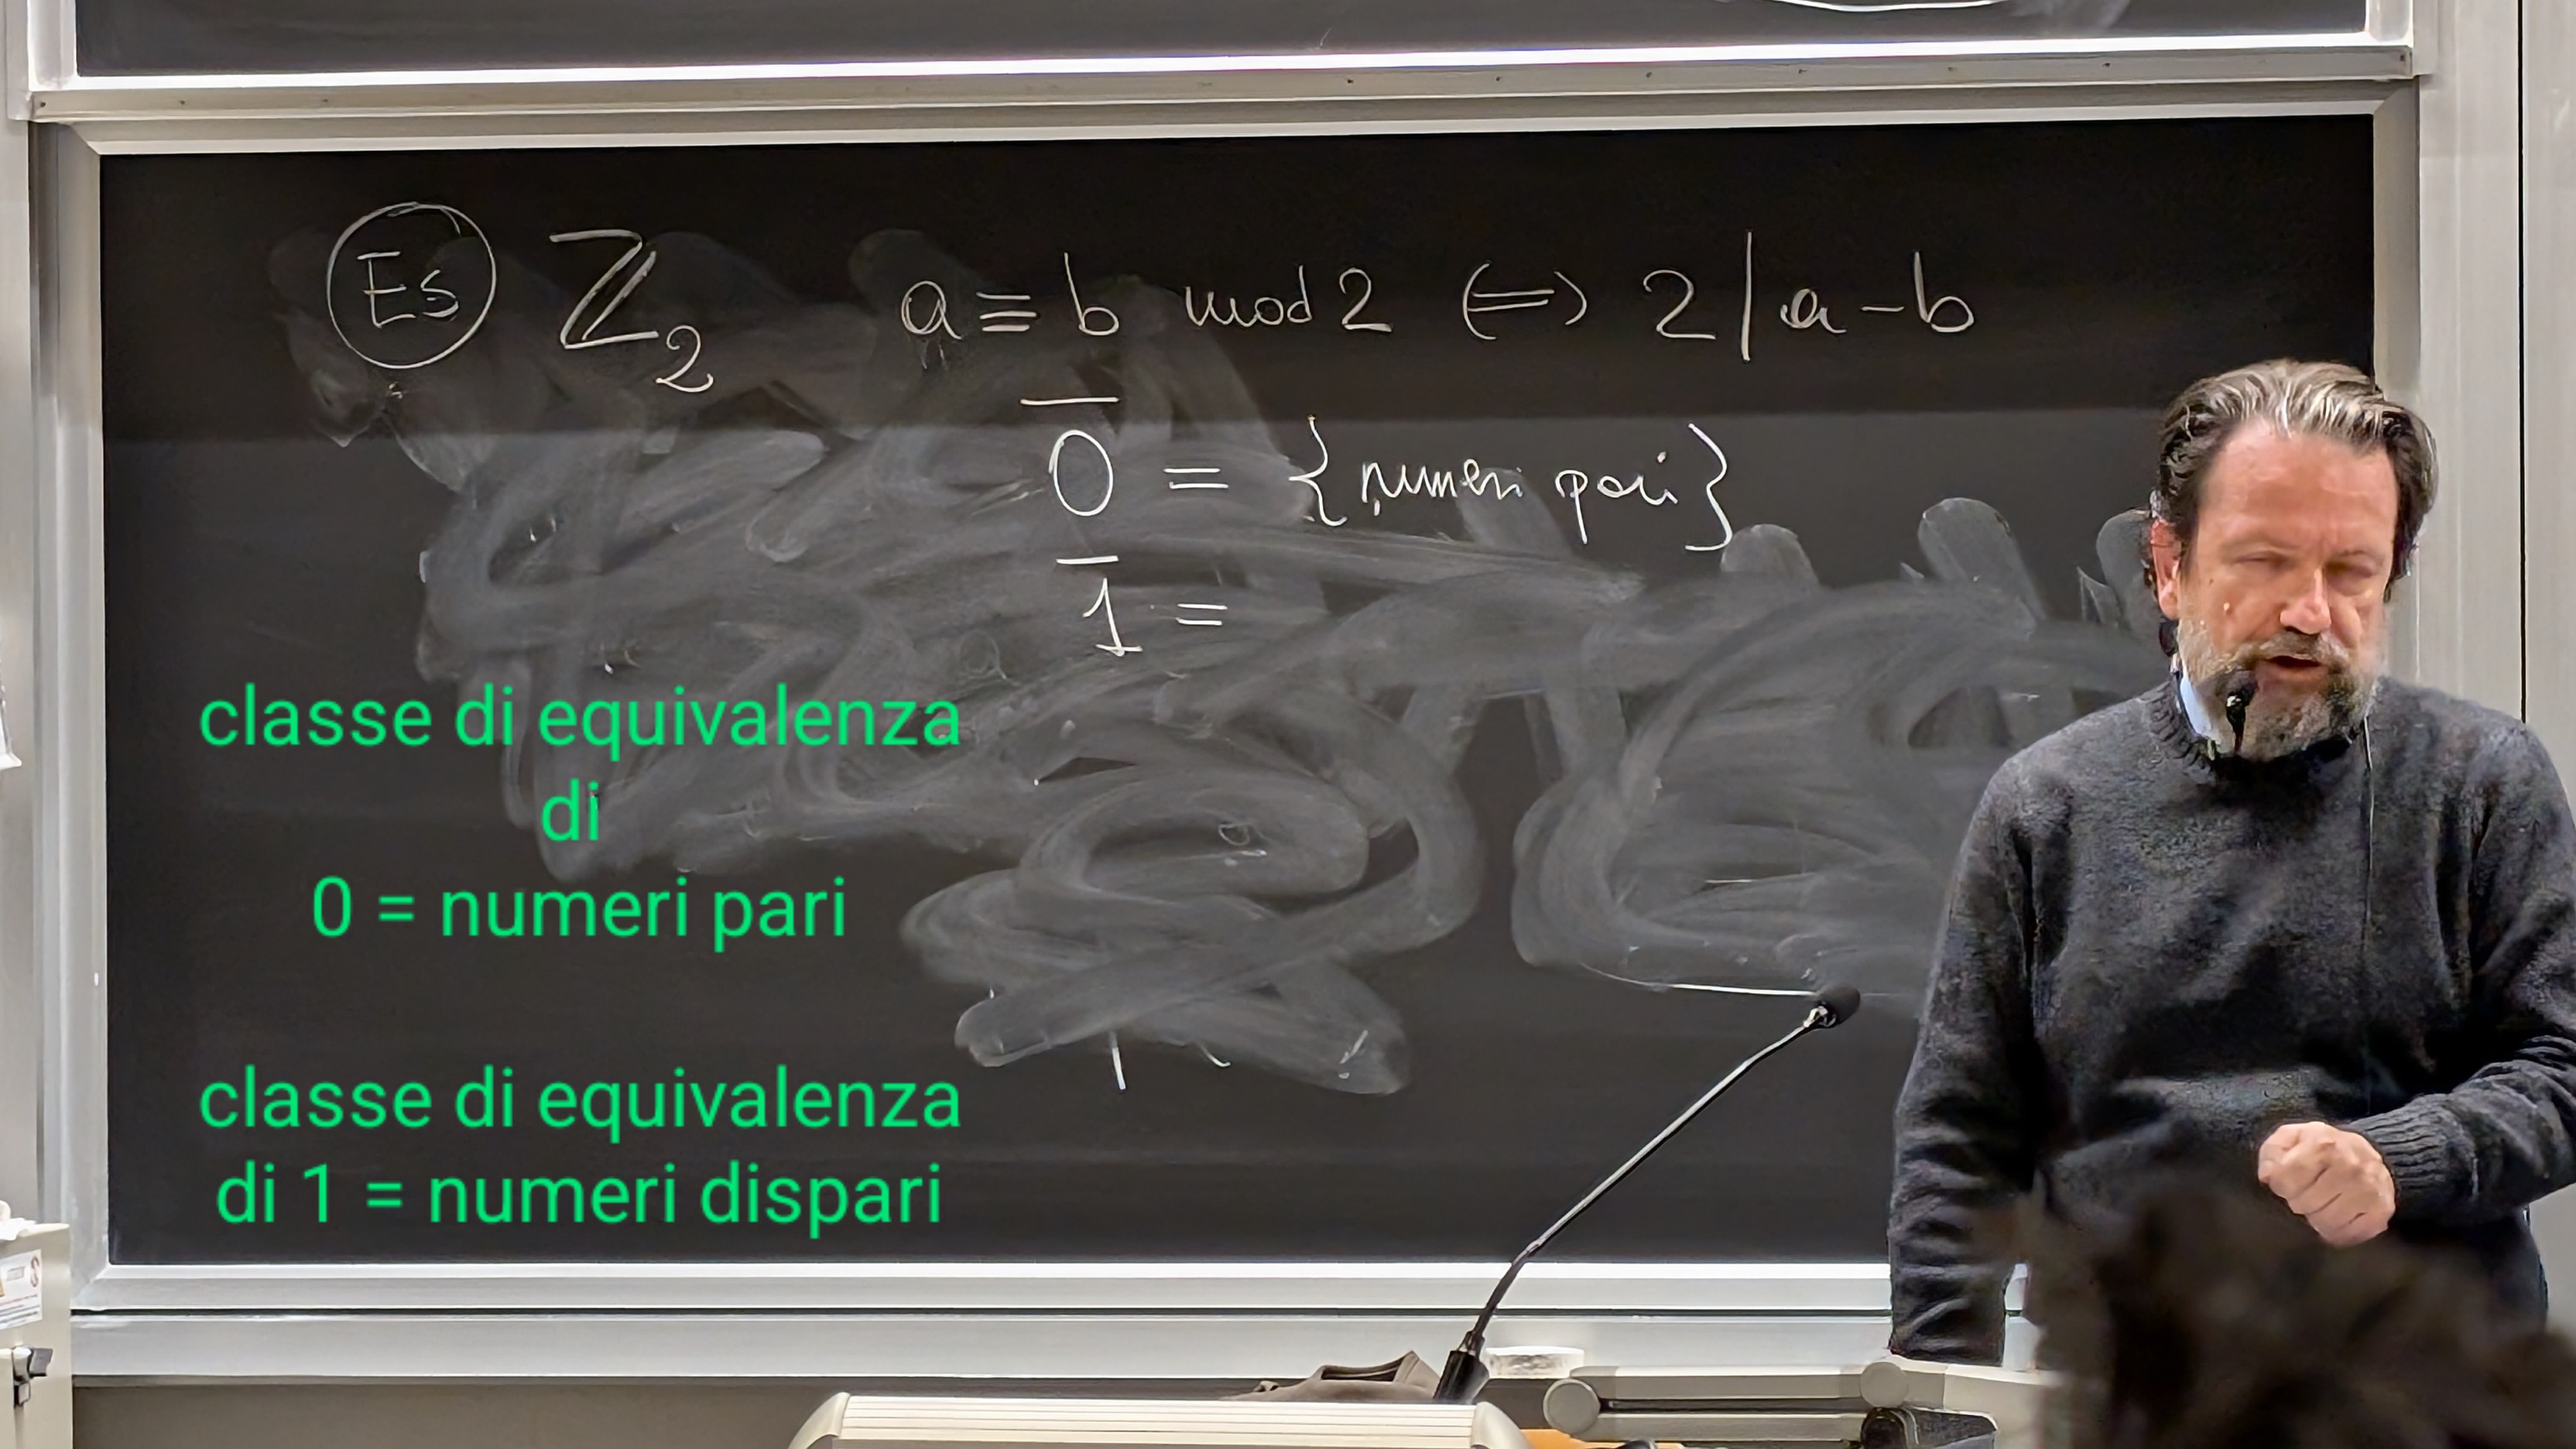 Es ℤ₂ a ≡ b mod 2 ⟺ 2 | a - b
0̅ = {numeri pari}
1̅ =
classe di equivalenza
di
0 = numeri pari
classe di equivalenza
di 1 = numeri dispari